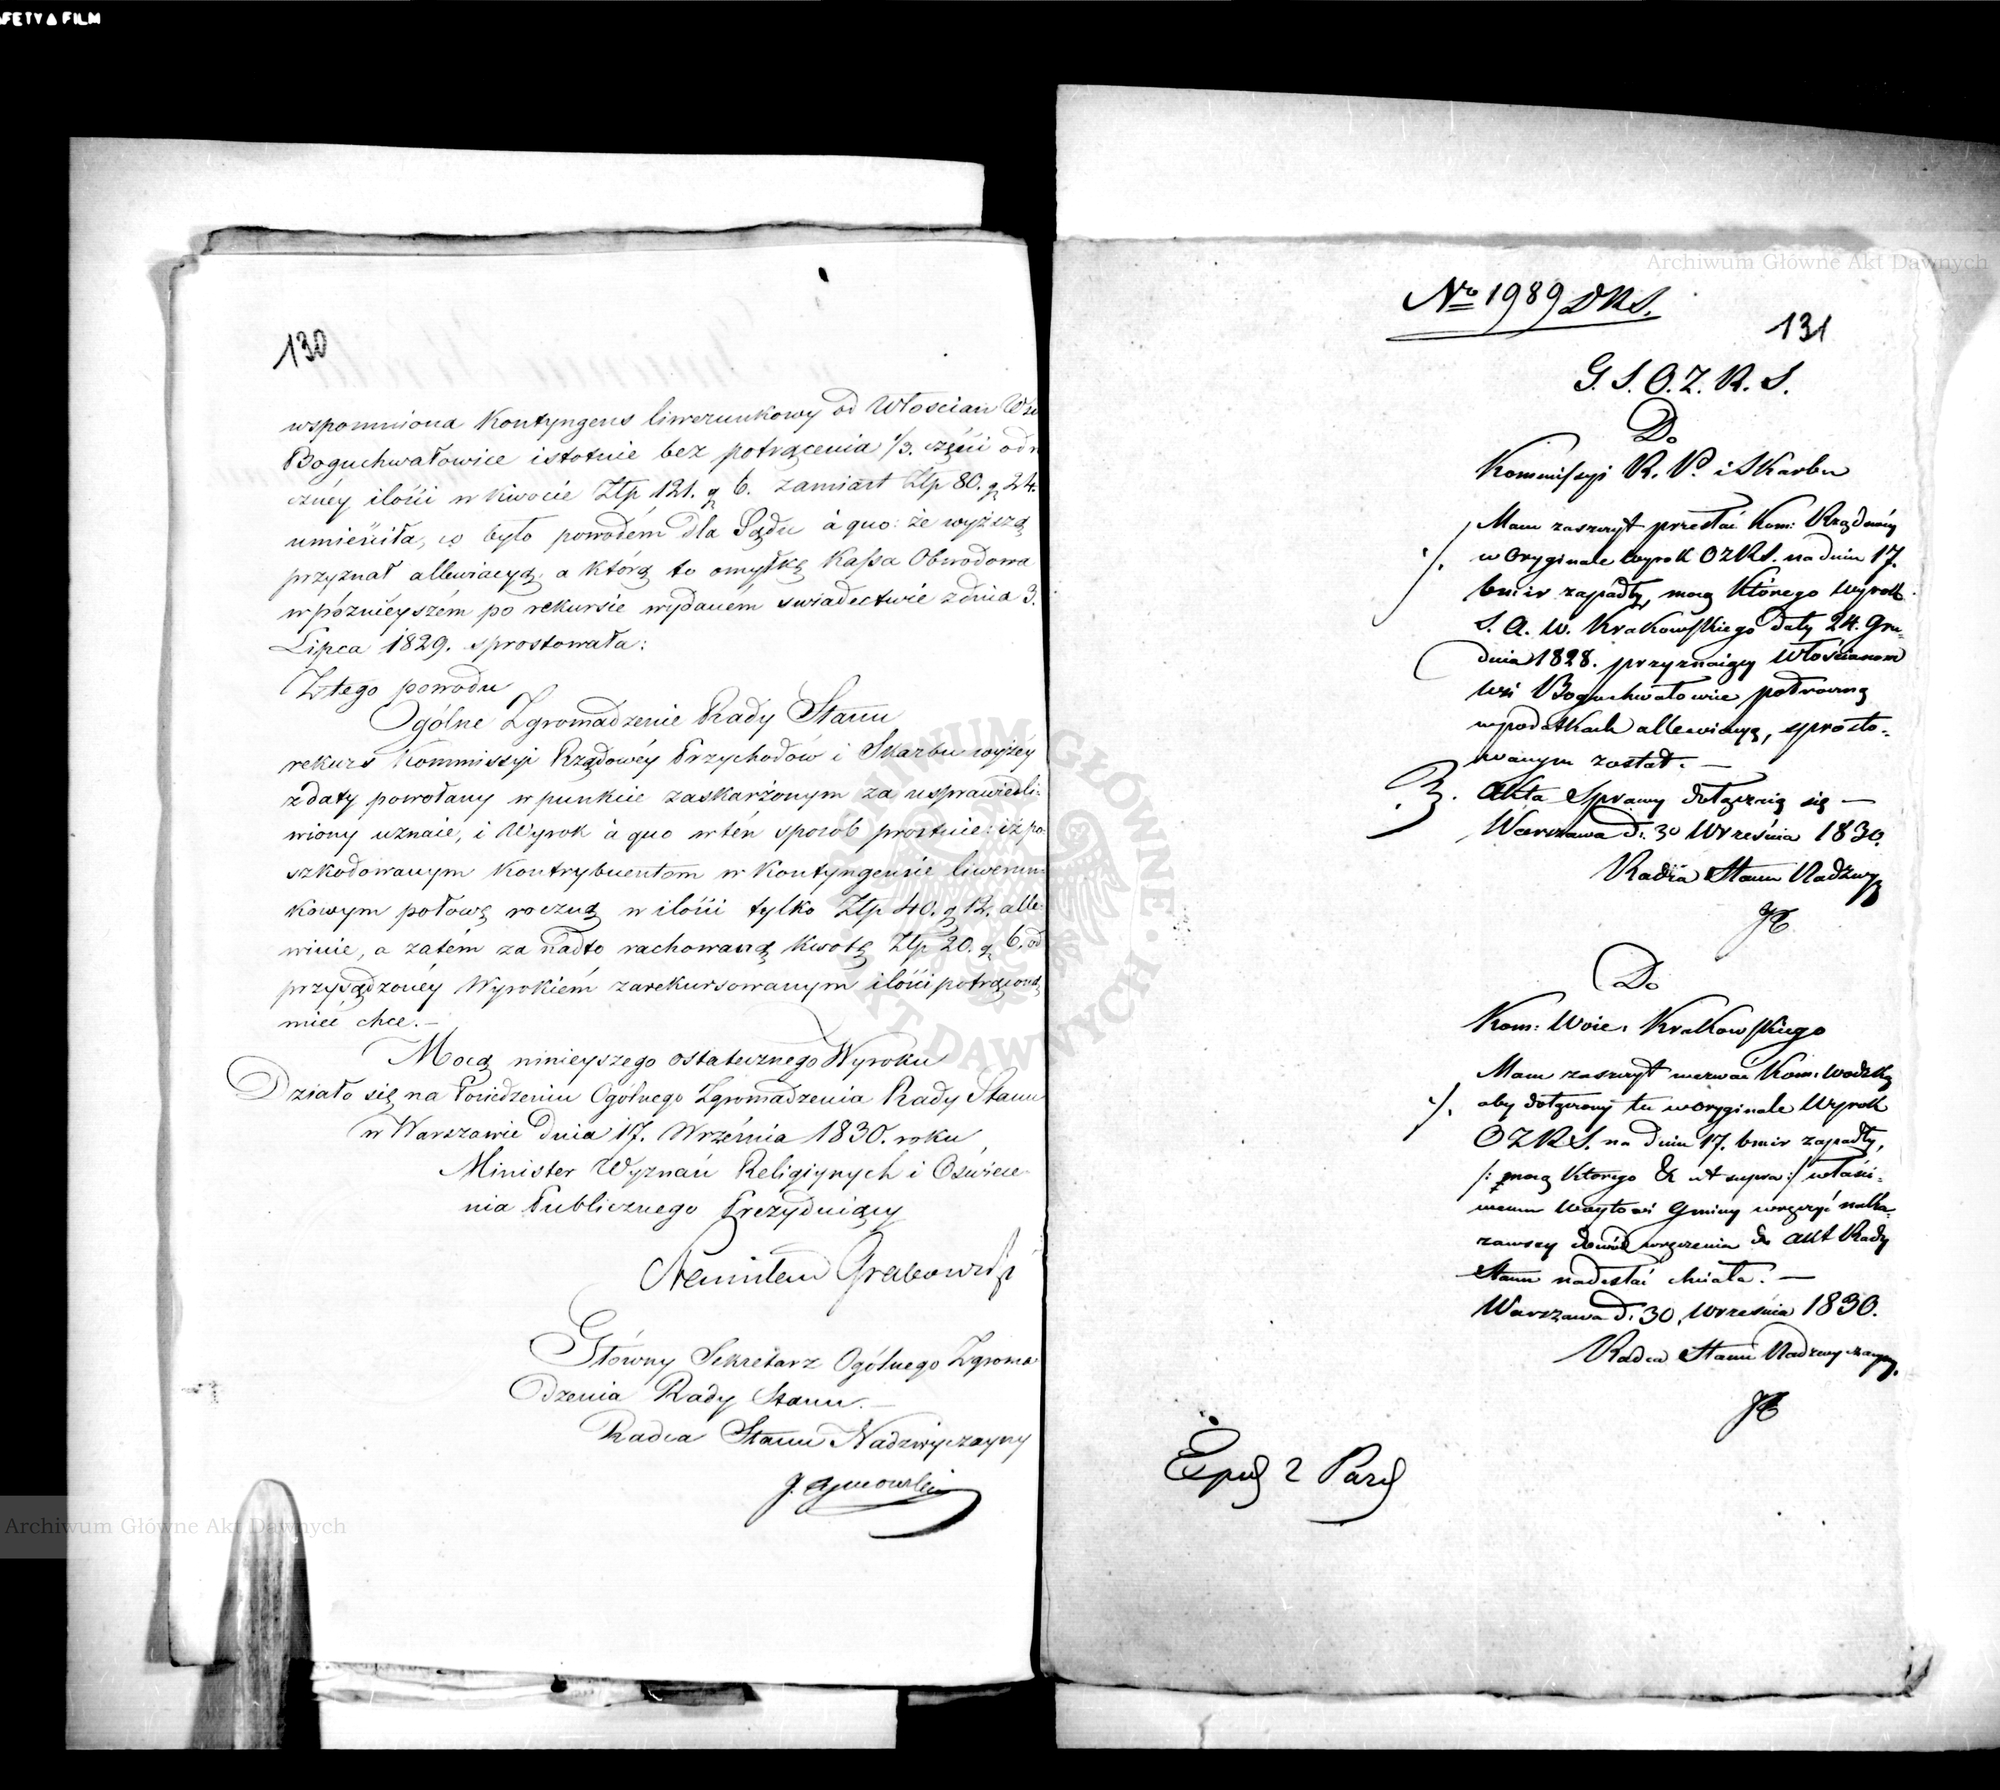 AFETY FILM
130
wspomniona Kontyngens liwerunkowy od Włoscian Wsi
Boguchwałowice istotnie bez potrącenia 1/3. części odr
czney ilości w kwocie Złp 121. g 6. zamiast Złp 80. g 24.
umieściła, co było powodem dla Sądu à quo: że wyższą
przyznał allewiacyą, a którą to omyłkę Kassa Obwodowa
w poźnieyszém po rekursie wydaném swiadectwie z dnia 3.
Lipca 1829. sprostowała:
Z tego powodu
Ogólne Zgromadzenie Rady Stanu
rekurs Kommissyi Rządowéy Przychodów i Skarbu wyżey
z daty powołany w punkcie zaskarżonym za usprawiedli-
wiony uznaie, i Wyrok à quo w tén sposób prostuie: iż po-
szkodowanym Kontrybuentom w Kontyngensie liwerun
kowym połowę roczną w ilości tylko Złp 40. g 12. alle-
winie, a zatém za nadto rachowaną kwotę Złp 20. g 6. od
przysądzonéy Wyrokiém zarekursowanym ilości potrąconą
mieć chce. —
Mocą ninieyszego ostatecznego Wyroku
Działo się na Posiedzeniu Ogólnego Zgromadzenia Rady Stanu
w Warszawie dnia 17. Września 1830. roku
Minister Wyznań Religiynych i Oświece
nia Publicznego Prezyduiący
Stanisław Grabowski
Główny Sekretarz Ogólnego Zgroma
dzenia Rady Stanu. —
Radca Stanu Nadzwyczayny
Nº 1989 DRS.
131
G. S. O. Z. R. S.
Do
Kommissyi R. P. i Skarbu
Mam zaszczyt przesłać Kom: Rządowéy
w Oryginale Wyrok OZRS. na dniu 17.
bm i r zapadły, mocą którego Wyrok
S. A. W. Krakowskiego daty 24. Gru-
dnia 1828. przyznaiący Włościanom
wsi Boguchwałowice potrącenia
w podatkach allewiacyą, sprosto-
wanym został. —
Akta Sprawy dołączaią się —
Warszawa d. 30 Września 1830.
Radca Stanu Nadzwy
Do
Kom: Woie. Krakowskiego
Mam zaszczyt wezwać Kom: Wodzką
aby dołączony tu w oryginale Wyrok
OZRS. na dniu 17. bm i r zapadły,
/: mocą którego & ut supra :/ właści-
wemu Woytowi Gminy wręczyć naka-
zawszy dowód wręczenia do Akt Rady
Stanu nadesłać chciała. —
Warszawa d. 30. Września 1830.
Radca Stanu Nadzwyczayny.
2
Archiwum Główne Akt Dawnych
Archiwum Główne Akt Dawnych
ARCHIWUM GŁÓWNE AKT DAWNYCH